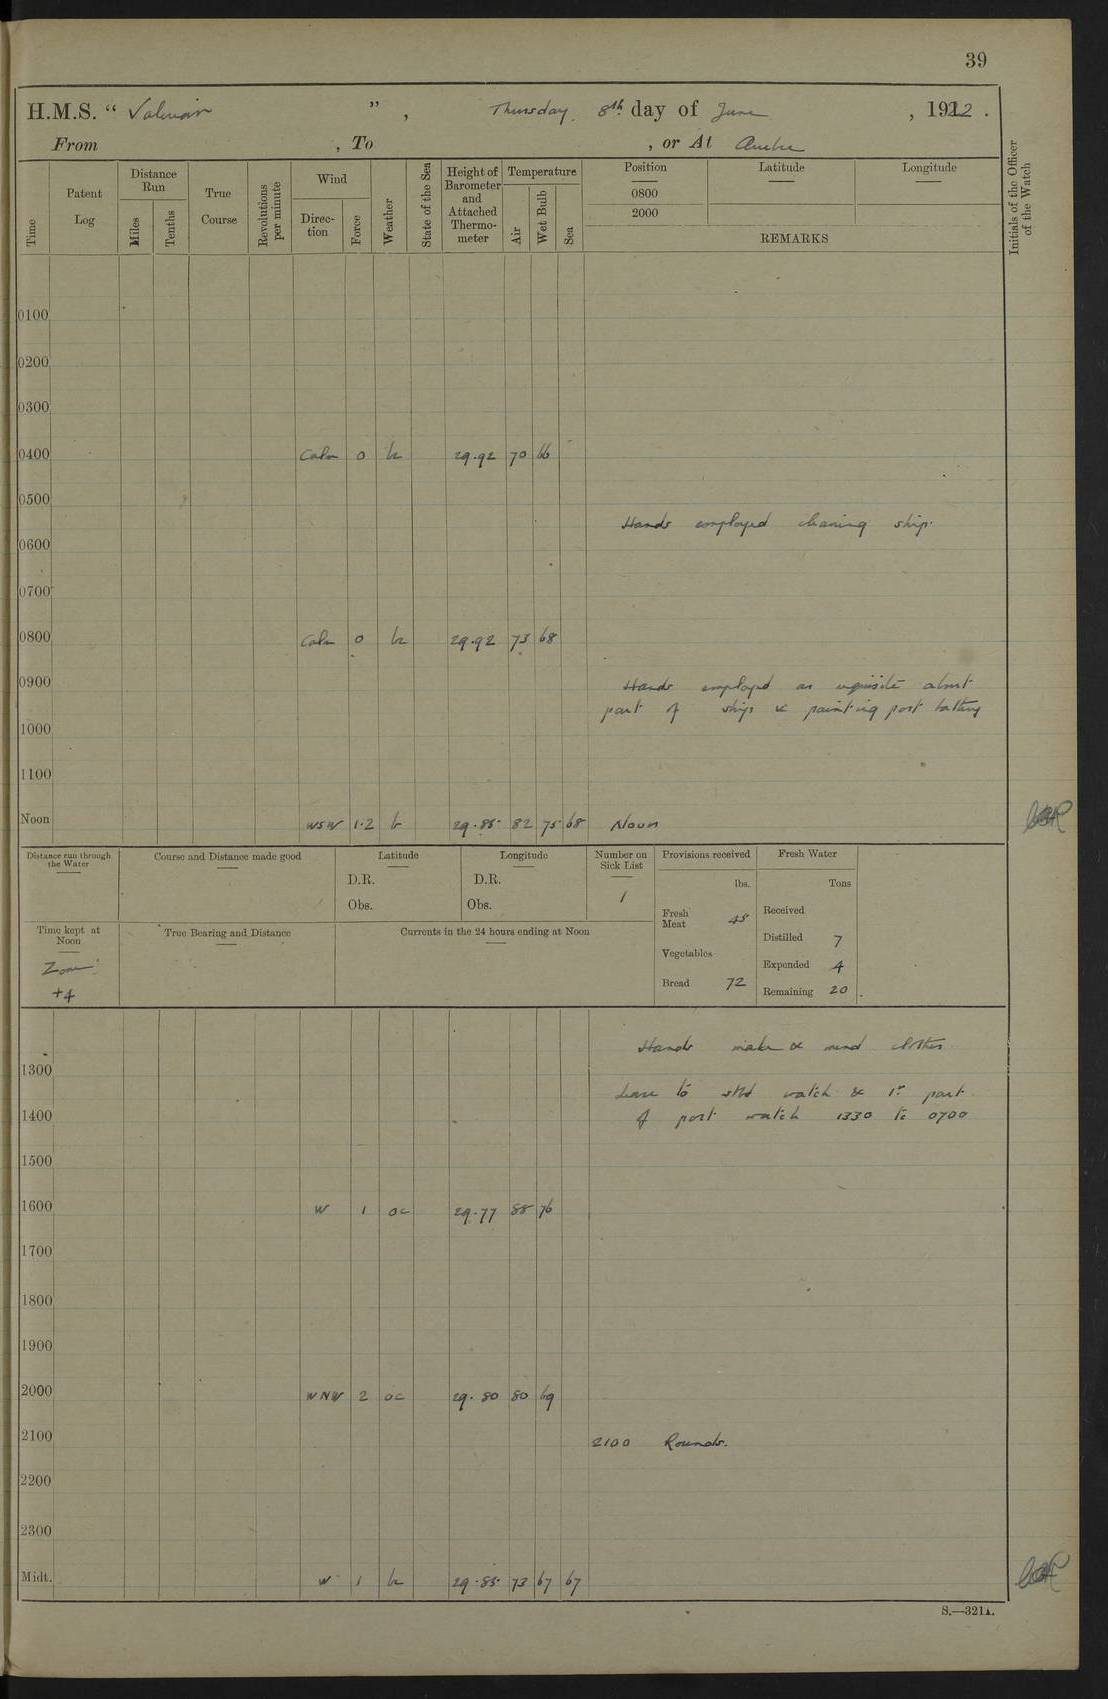 39
H.M.S. " Valerian ", Thursday 8th day of June , 1922 .
From , To , or At
Time
Patent Log
Distance Run
Miles
Tenths
True Course
Revolutions per minute
Wind
Direction
Force
Weather
State of the Sea
Height of Barometer and Attached Thermometer
Temperature
Air
Wet Bulb
Sea
Position
0800
2000
Latitude
Longitude
REMARKS
Initials of the Officer of the Watch
0100
0200
0300
0400 Calm 0 bc 29.92 70 66
0500
Hands employed cleaning ship.
0600
0700
0800 Calm 0 bc 29.92 73 68
0900 Hands employed as requisite about
part of ship & painting port battery
1000
1100
Noon WSW 1-2 b 29.85 82 75 68 Noon
Distance run through the Water
Course and Distance made good
Latitude
D.R.
Obs.
Longitude
D.R.
Obs.
Number on Sick List
1
Provisions received
lbs.
Fresh Meat 48
Vegetables
Bread 72
Fresh Water
Tons
Received
Distilled 7
Expended 4
Remaining 20
Time kept at Noon
Zone
+4
True Bearing and Distance
Currents in the 24 hours ending at Noon
Hands make & mend clothes
1300
Leave to stbd watch & 1st part
1400 of port watch 1330 to 0700
1500
1600 W 1 oc 29.77 88 76
1700
1800
1900
2000 WNW 2 oc 29.80 80 69
2100 2100 Rounds.
2200
2300
Midt. W 1 bc 29.85 73 67 67
S.—321A.